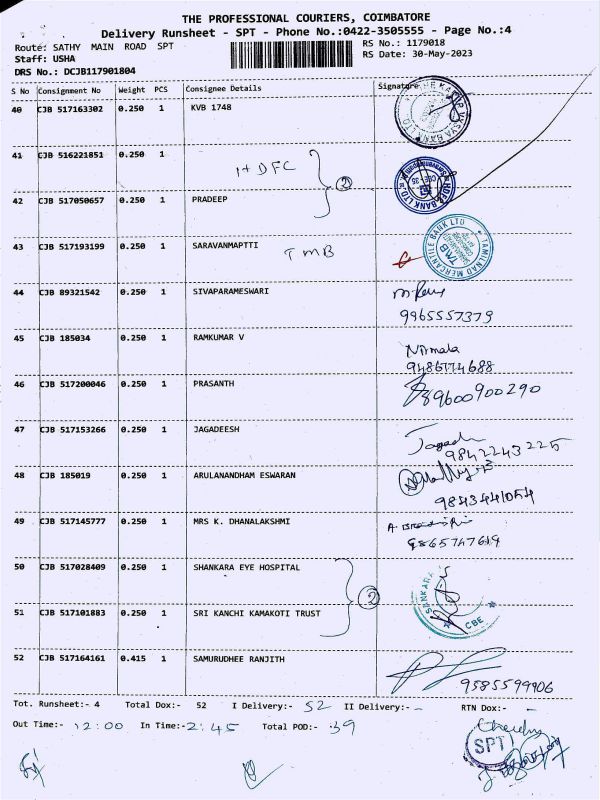 THE PROFESSIONAL COURIERS, COIMBATORE
Delivery Runsheet - SPT - Phone No.:0422-3505555 - Page No.:4
Route: SATHY MAIN ROAD SPT RS No.: 1179018
Staff: USHA RS Date: 30-May-2023
DRS No.: DCJB117901804
S No Consignment No Weight PCS Consignee Details Signature
40 CJB 517163302 0.250 1 KVB 1748
41 CJB 516221851 0.250 1
42 CJB 517050657 0.250 1 PRADEEP
2
43 CJB 517193199 0.250 1 SARAVANMAPTTI TMB
TAMILNAD MERCANTILE BANK LTD
TMB
44 CJB 89321542 0.250 1 SIVAPARAMESWARI
9965557379
45 CJB 185034 0.250 1 RAMKUMAR V
Nirmala
9486774688
46 CJB 517200046 0.250 1 PRASANTH
89600900290
47 CJB 517153266 0.250 1 JAGADEESH
9842243225
48 CJB 185019 0.250 1 ARULANANDHAM ESWARAN
9843441054
49 CJB 517145777 0.250 1 MRS K. DHANALAKSHMI
9865747619
50 CJB 517028409 0.250 1 SHANKARA EYE HOSPITAL
2
SANKARA
CBE
51 CJB 517101883 0.250 1 SRI KANCHI KAMAKOTI TRUST
52 CJB 517164161 0.415 1 SAMURUDHEE RANJITH
9585599906
Tot. Runsheet:- 4 Total Dox:- 52 I Delivery:- 52 II Delivery:- - RTN Dox:- -
Out Time:- 12:00 In Time:- 2:45 Total POD:- 39
SPT